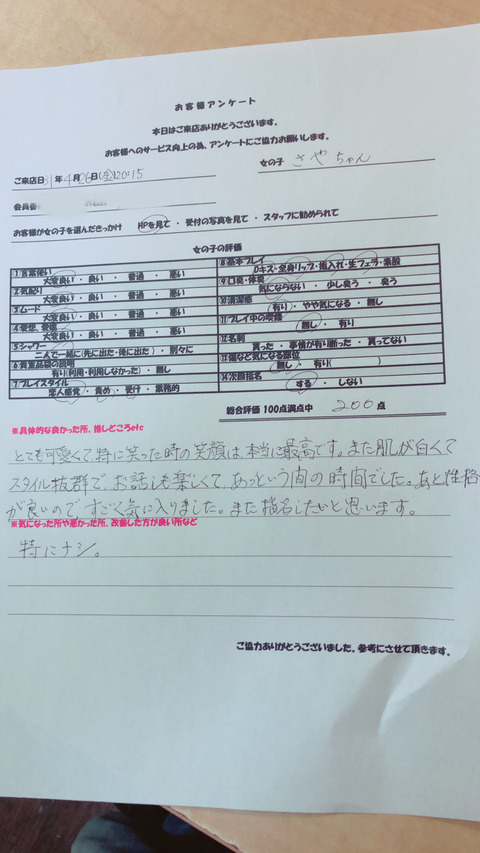 お客様アンケート
本日はご来店ありがとうございます。
お客様へのサービス向上の為、アンケートにご協力お願いします。
女の子 さやちゃん
ご来店日 31年 4月 26日(金)20:15
会員番
お客様が女の子を選んだきっかけ HPを見て ・ 受付の写真を見て ・ スタッフに勧められて
女の子の評価
①言葉使い
大変良い ・ 良い ・ 普通 ・ 悪い
②気配り
大変良い ・ 良い ・ 普通 ・ 悪い
③ムード
大変良い ・ 良い ・ 普通 ・ 悪い
④愛想、愛嬌
大変良い ・ 良い ・ 普通 ・ 悪い
⑤シャワー
二人で一緒に(先に出た・後に出た) ・ 別々に
⑥貴重品袋の説明
有り(利用・利用しなかった) ・ 無し
⑦プレイスタイル
恋人感覚 ・ 責め ・ 受け ・ 業務的
⑧基本プレイ
Dキス・全身リップ・指入れ・生フェラ・素股
⑨口臭・体臭
気にならない ・ 少し臭う ・ 臭う
⑩清潔感
有り ・ やや気になる ・ 無し
⑪プレイ中の喫煙
無し ・ 有り
⑫名刺
貰った ・ 事情が有り断った ・ 貰ってない
⑬傷など気になる部位
無し ・ 有り( )
⑭次回指名
する ・ しない
総合評価 100点満点中 200 点
※具体的な良かった所、推しどころetc
とても可愛くて特に笑った時の笑顔は、本当に最高です。また肌が白くて
スタイル抜群で、お話しも楽しくて、あっという間の時間でした。あと性格
が良いので、すごく気に入りました。また指名したいと思います。
※気になった所や悪かった所、改善した方が良い所など
特にナシ。
ご協力ありがとうございました。参考にさせて頂きます。